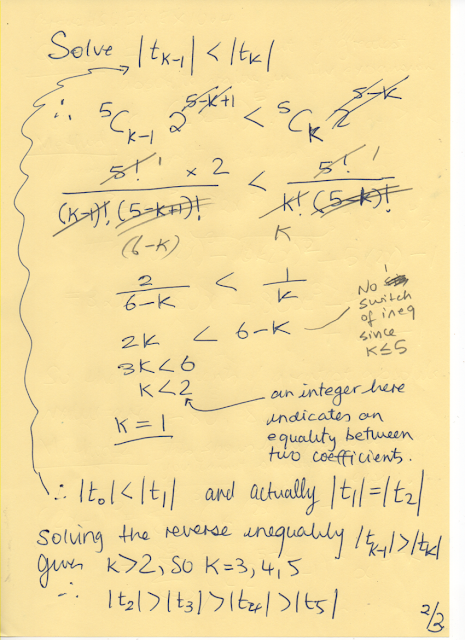 Solve |t_{k-1}| < |t_k|
∴ ⁵C_{k-1} 2^{5-k+1} < ⁵C_k 2^{5-k}
5! × 2 / (k-1)! (5-k+1)! < 5! 1 / k! (5-k)!
(6-k) k
2/(6-k) < 1/k
2k < 6-k
3k < 6
k < 2
k = 1
No
switch
of ineq
since
k ≤ 5
an integer here
indicates an
equality between
two coefficients.
∴ |t₀| < |t₁| and actually |t₁| = |t₂|
solving the reverse inequality |t_{k-1}| > |t_k|
gives k > 2, so k = 3, 4, 5
∴ |t₂| > |t₃| > |t₄| > |t₅|
2/3